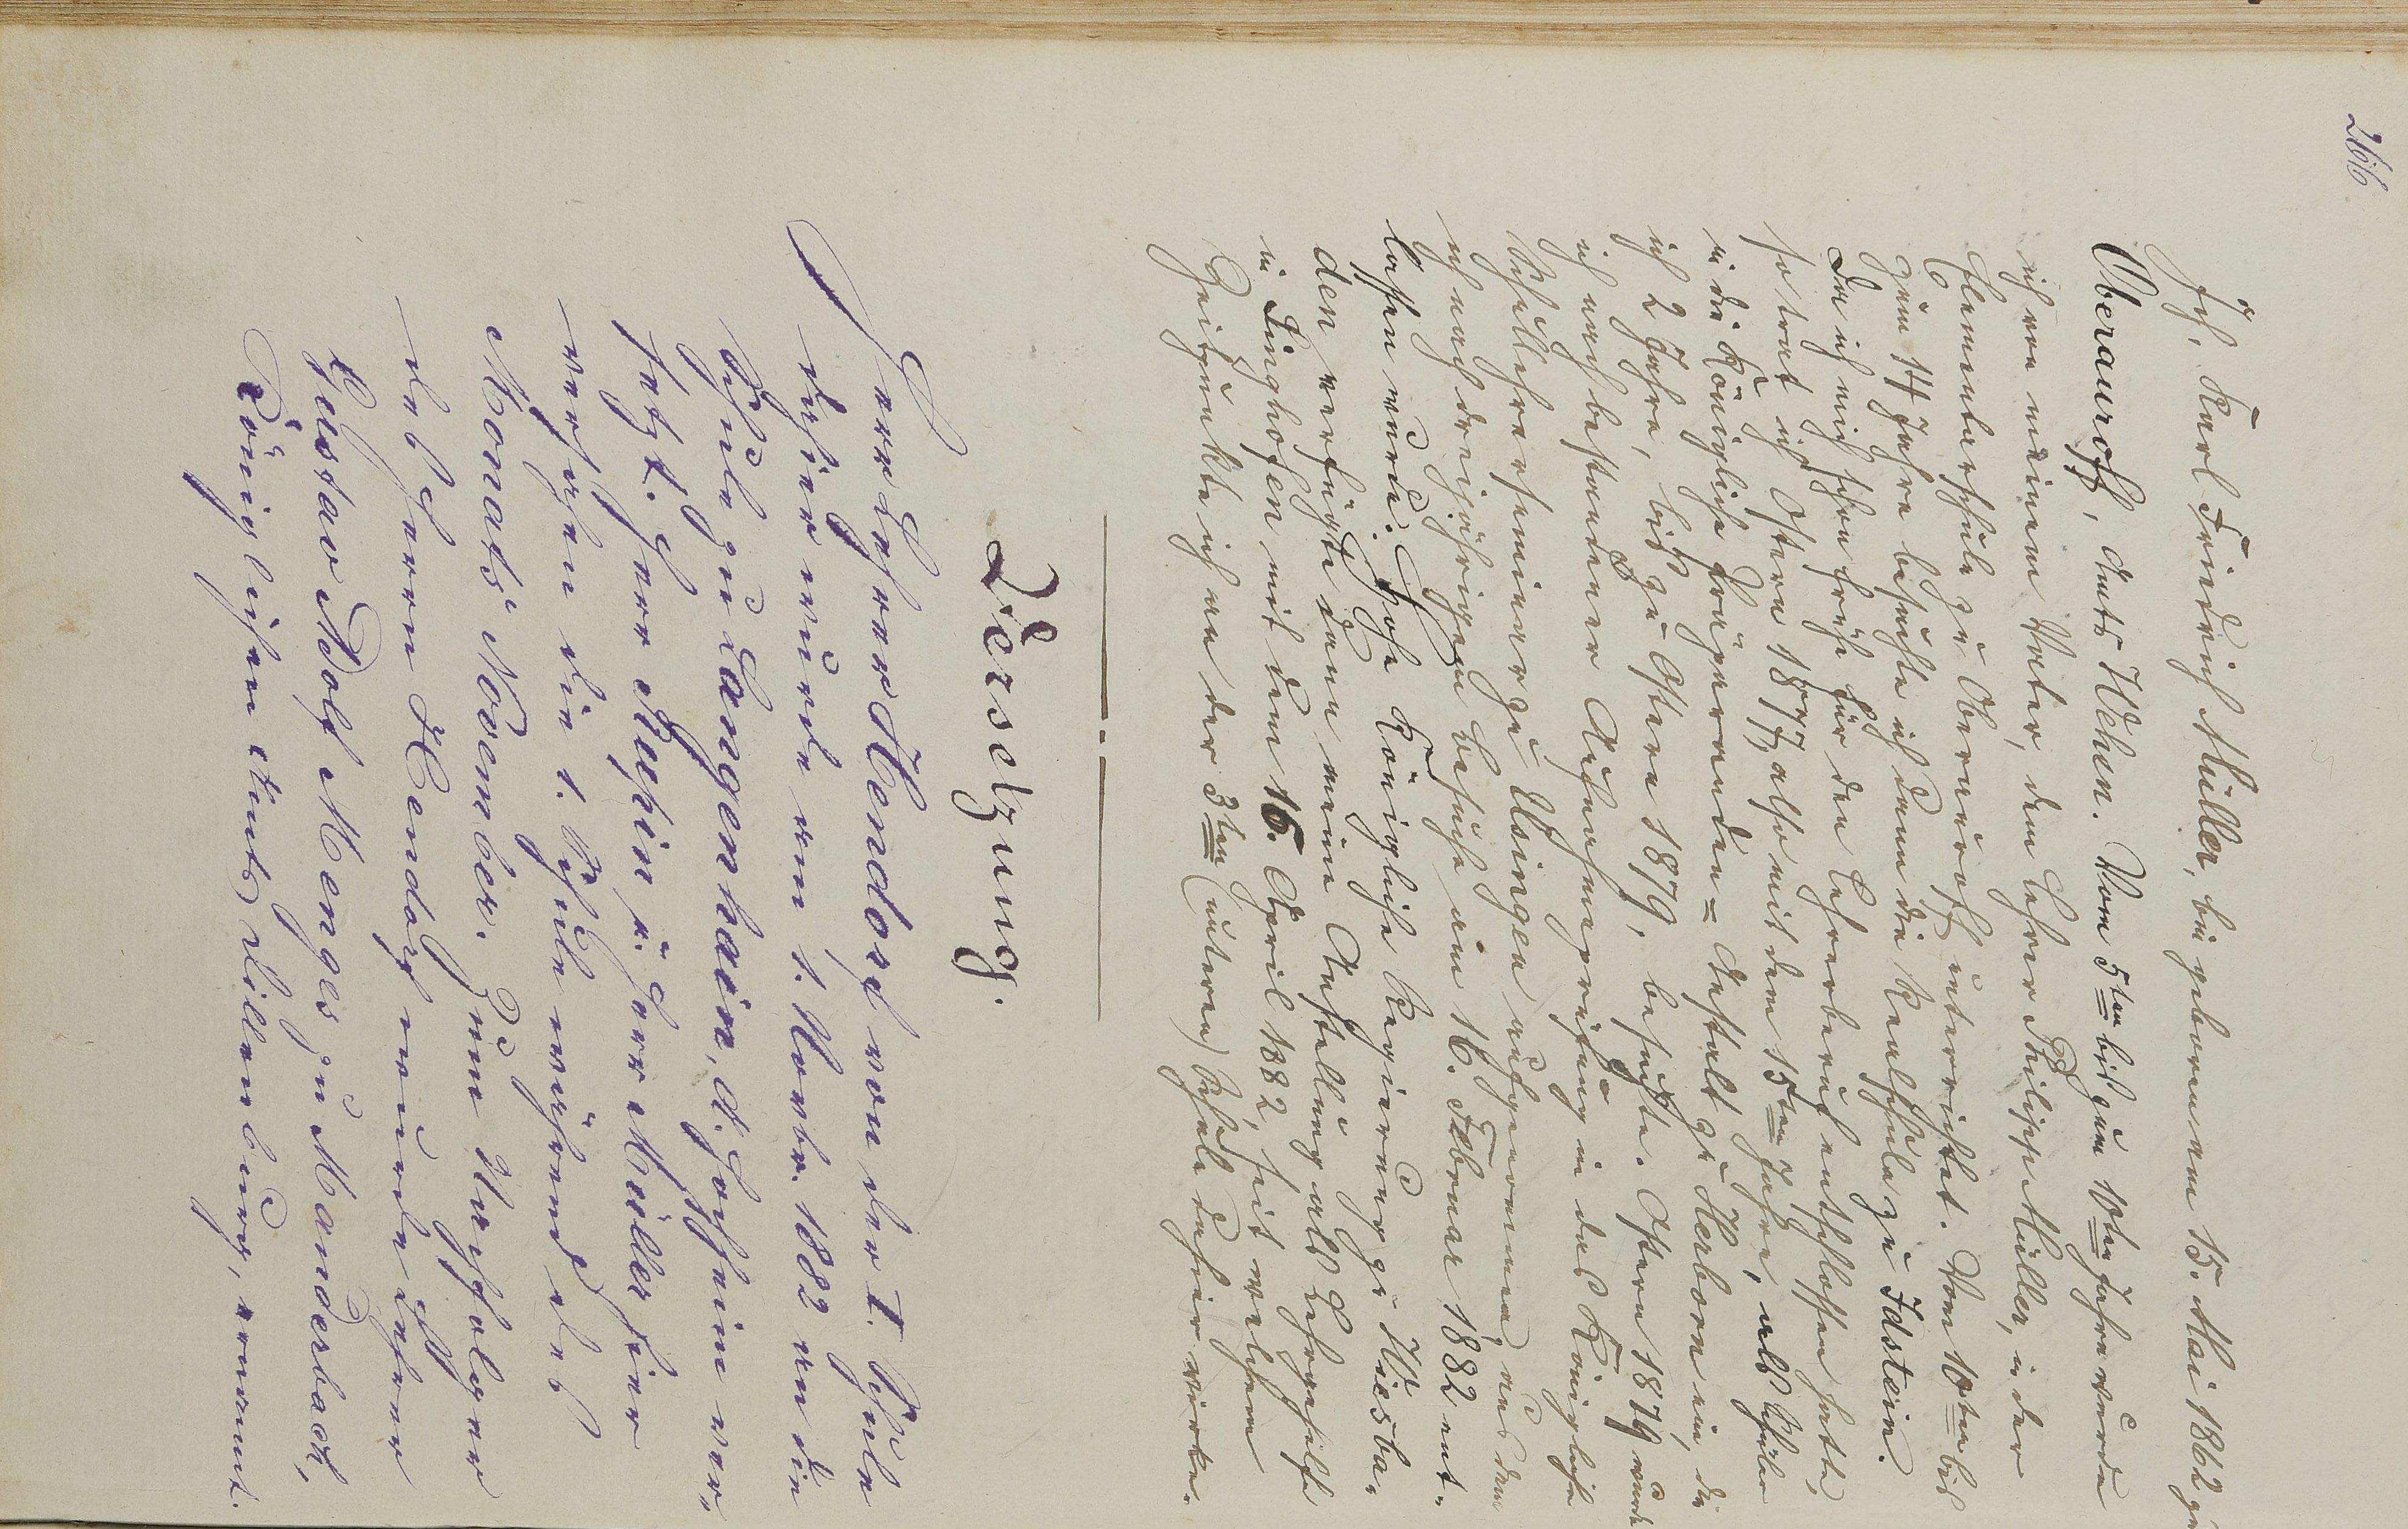 266
Ich, Karl Friedrich Müller, bin geboren am 15. Mai 1862 zu
Oberauroff, Amts Wehen. Vom 5ten bis zum 10ten Jahre wurde
ich von meinem Vater, dem Lehrer Philipp Müller, in der
Elementarschule zu Oberauroff unterrichtet. Vom 10ten bis
zum 14 Jahre besuchte ich dann die Realschule zu Idstein.
Da ich mich schon früh für den Lehrerberuf entschlossen hatte,
so trat ich Ostern 1877, also mit dem 15ten Jahre, als Schüler
in die Königliche Präparanden-Anstalt zu Herborn ein, die
ich 2 Jahre, bis zu Ostern 1879, besuchte. Ostern 1879 wurde
ich nach bestandener Aufnahmeprüfung in das Königliche
Schullehrerseminar zu Usingen aufgenommen, aus dem
ich nach dreijährigem Besuche am 16. Februar 1882 ent-
lassen wurde. Hohe Königliche Regierung zu Wiesba-
den verfügte dann meine Anstellung als Lehrgehilfe
in Singhofen mit dem 16. April 1882, seit welchem
Zeitpunkte ich an der 3ten (unteren) Schule dahier wirke.
Versetzung.
Herr Lehrer Hendorf von der I. Schule
dahier wurde vom 1. Novbr. 1882 an die
Schule zu Langenhain, A. Hofheim ver-
setzt. Herr u. Herr Müller hier
versahen die 1. Schule während des
Monats November. Zum Nachfolger
des Herrn Hendorf wurde Lehrer
Gustav Adolf Menges zu Manderbach,
Königlichen Amts Dillenburg, ernannt.